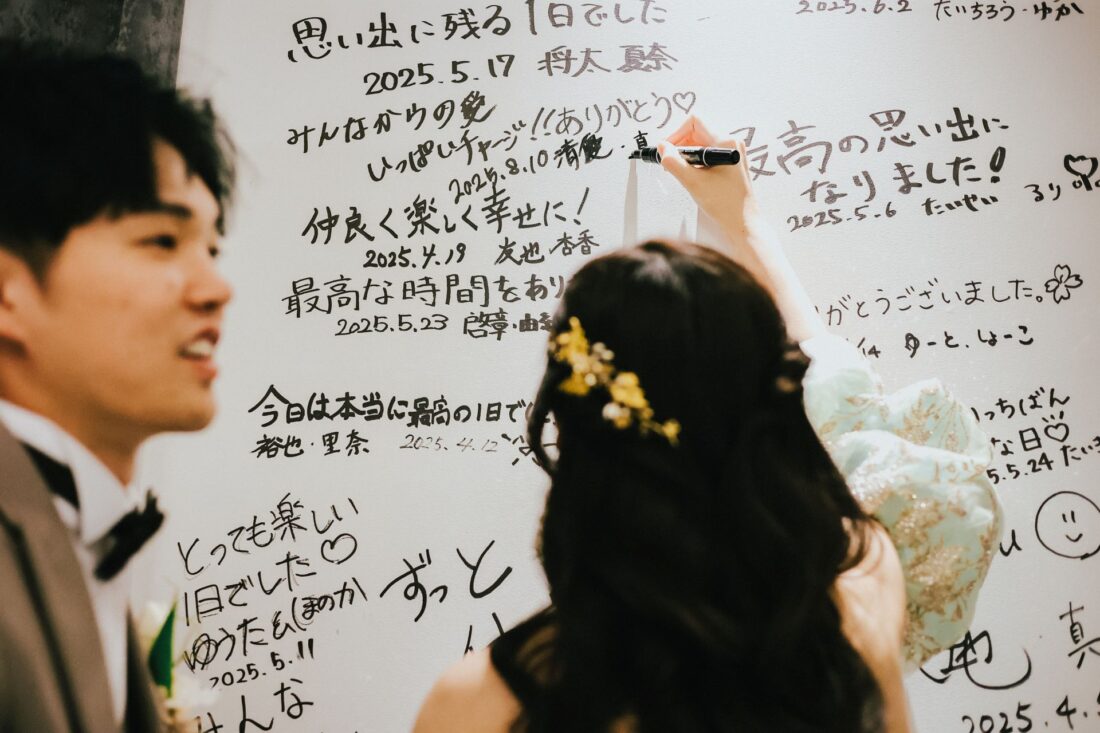 思い出に残る1日でした
2025.5.17 将太 夏奈
みんなからの愛
いっぱいチャージ!!ありがとう♡
2025.8.10 清愛・真
仲良く楽しく幸せに!
2025.4.19 友也・杏香
最高な時間をあり
2025.5.23 啓章・由
今日は本当に最高の1日で
裕也・里奈 2025.4.12
とっても楽しい
1日でした♡
ゆうた&ほのか
2025.5.11
みんな
ずっと
2025.6.2 たいちろう・ゆか
最高の思い出に
なりました!
2025.5.6 たいせい るり
がとうございました。
ゆーと、しょーこ
いっちばん
な日♡
5.5.24 たいき
い
也 真
2025.4.